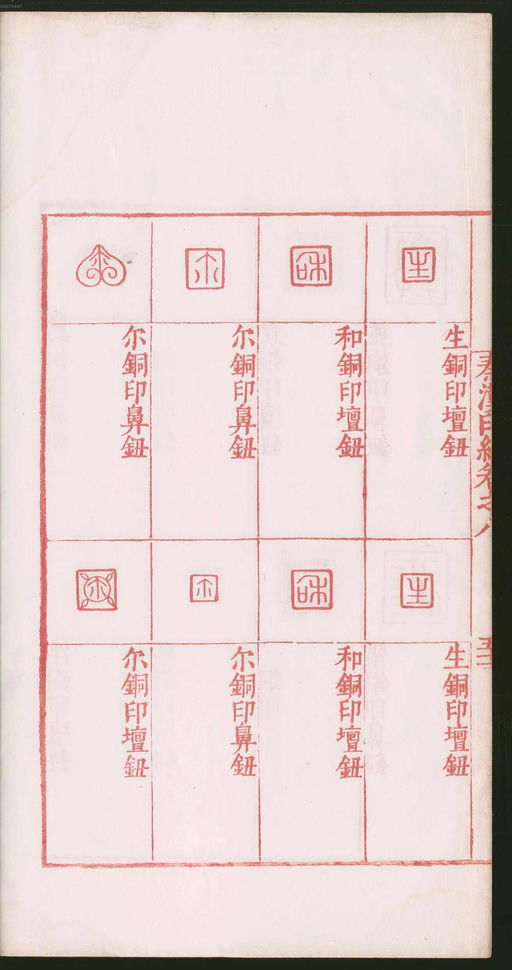 秦漢印統卷之八
生銅印壇鈕
和銅印壇鈕
尔銅印鼻鈕
尔銅印鼻鈕
生銅印壇鈕
和銅印壇鈕
尔銅印鼻鈕
尔銅印壇鈕